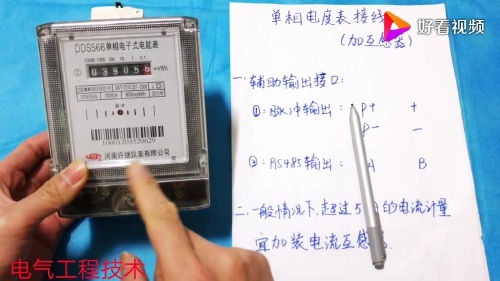 DDS566单相电子式电能表
10000 1000 100 10 1 0.1
② 03905 kWh
脉冲
10001201520629
河南许继仪表有限公司
单相电度表接线
(加互感器)
好看视频
一.辅助输出接口:
①:脉冲输出: P+ +
P- -
②:RS485输出: A B
二.一般情况下,超过 的电流计量
宜加装电流互感器.
电气工程技术